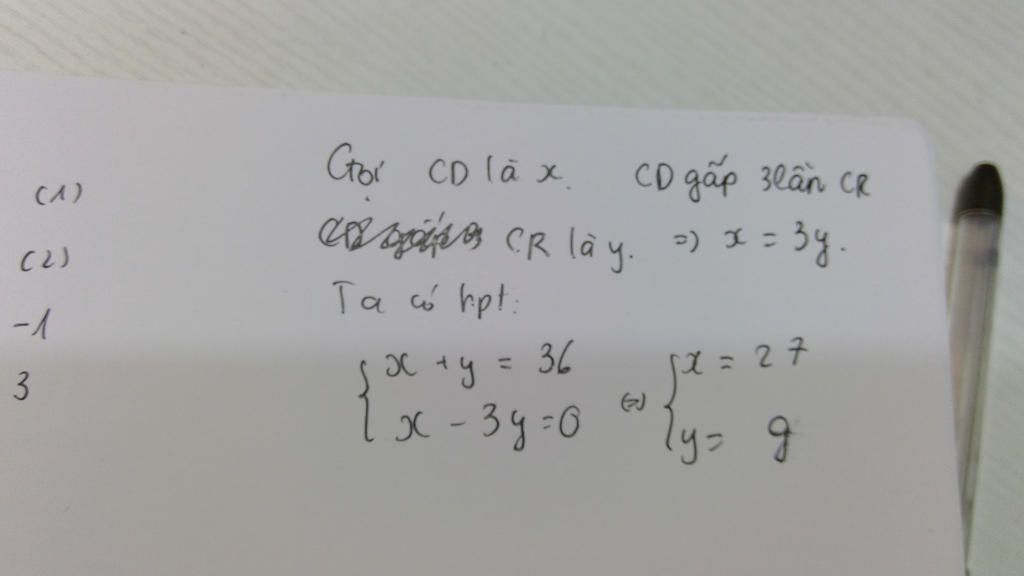 (1)
(2)
-1
3
Gọi CD là x. CD gấp 3 lần CR
CR là y. => x = 3y.
Ta có hpt:
{ x + y = 36 <=> { x = 27
x - 3y = 0 y = 9